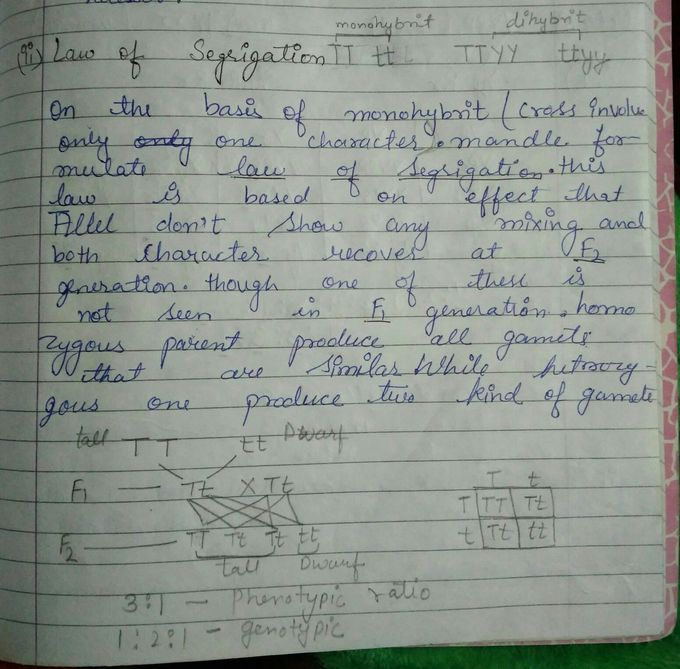 monohybrit dihybrit
(ii) Law of Segrigation TT tt TTYY ttyy
On the basis of monohybrit (cross involve
only only one character. mandle for-
mulate law of segrigation. this
law is based on effect that
Allel don't show any mixing and
both character recover at F2
generation. though one of these is
not seen in F1 generation. homo
zygous parent produce all gamets
that are similar while hetrozy-
gous one produce two kind of gamete
tall TT tt Dwarf
F1 Tt X Tt
F2 TT Tt Tt tt
tall Dwarf
T t
T TT Tt
t Tt tt
3:1 - Phenotypic ratio
1:2:1 - genotypic